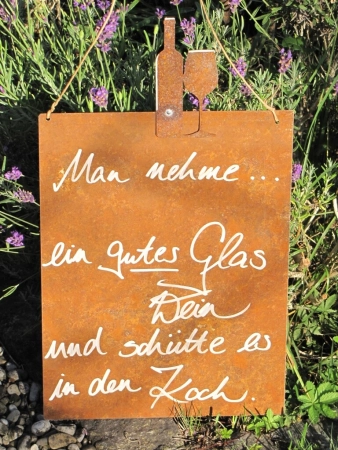 Man nehme...
ein gutes Glas
Wein
und schütte es
in den Koch.